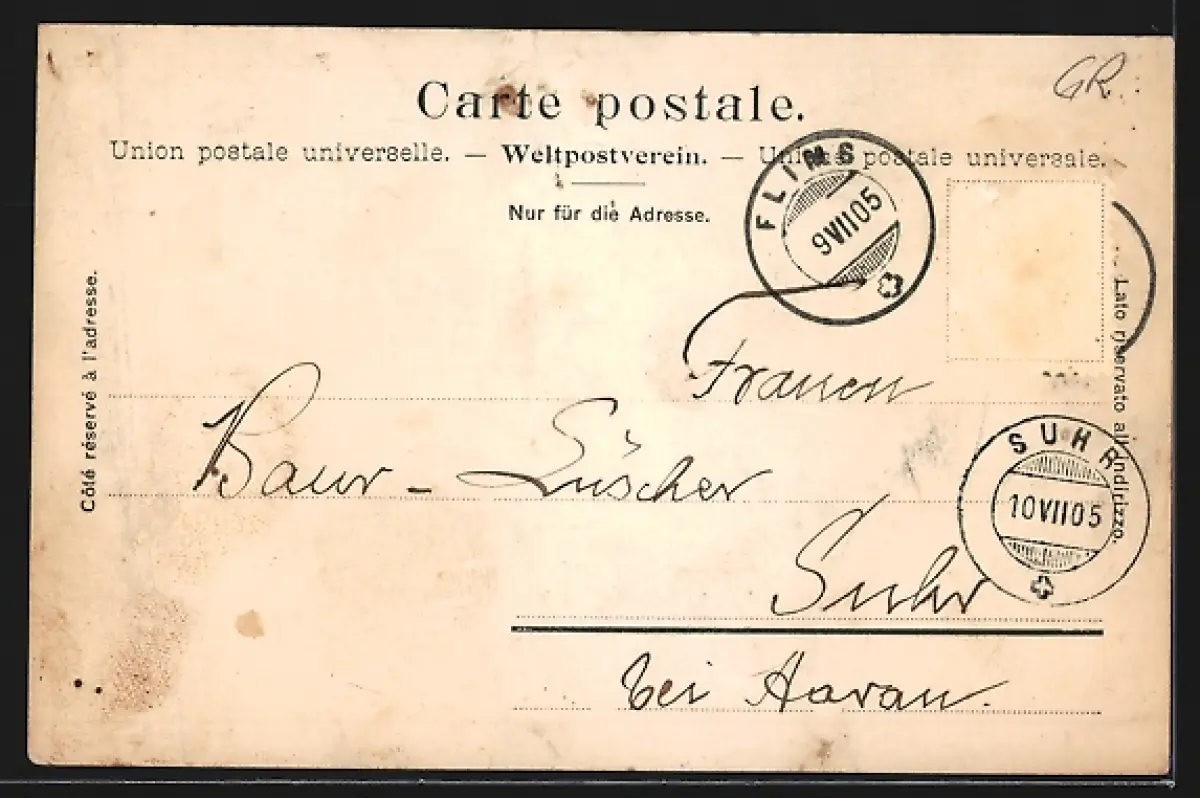 GR.
Carte postale.
Union postale universelle. — Weltpostverein. — Unione postale universale.
Nur für die Adresse.
FLIMS
9 VII 05
Côté réservé à l'adresse.
Lato riservato all'indirizzo.
Frauen
Baur - Lüscher
SUHR
10 VII 05
Suhr
bei Aarau.